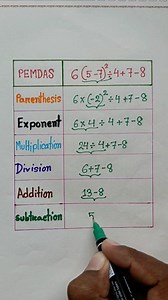 PEMDAS 6(5-7)²÷4+7-8
Parenthesis 6×(-2)²÷4+7-8
Exponent 6×4÷4+7-8
Multiplication 24÷4+7-8
Division 6+7-8
Addition 13-8
Subtraction 5